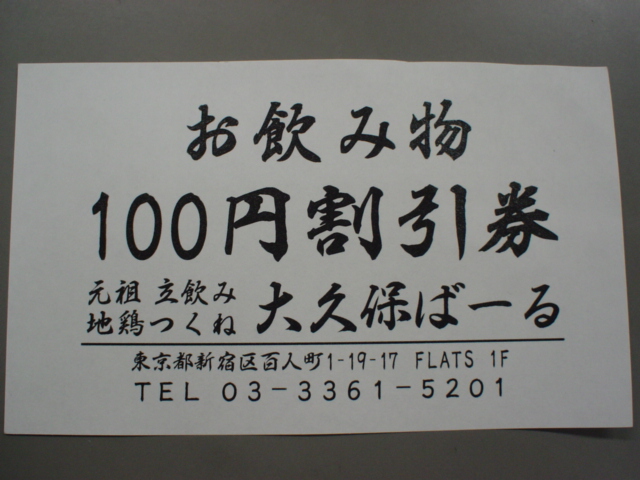 お飲み物
100円割引券
元祖 立飲み
地鶏つくね 大久保ばーる
東京都新宿区百人町1-19-17 FLATS 1F
TEL 03-3361-5201